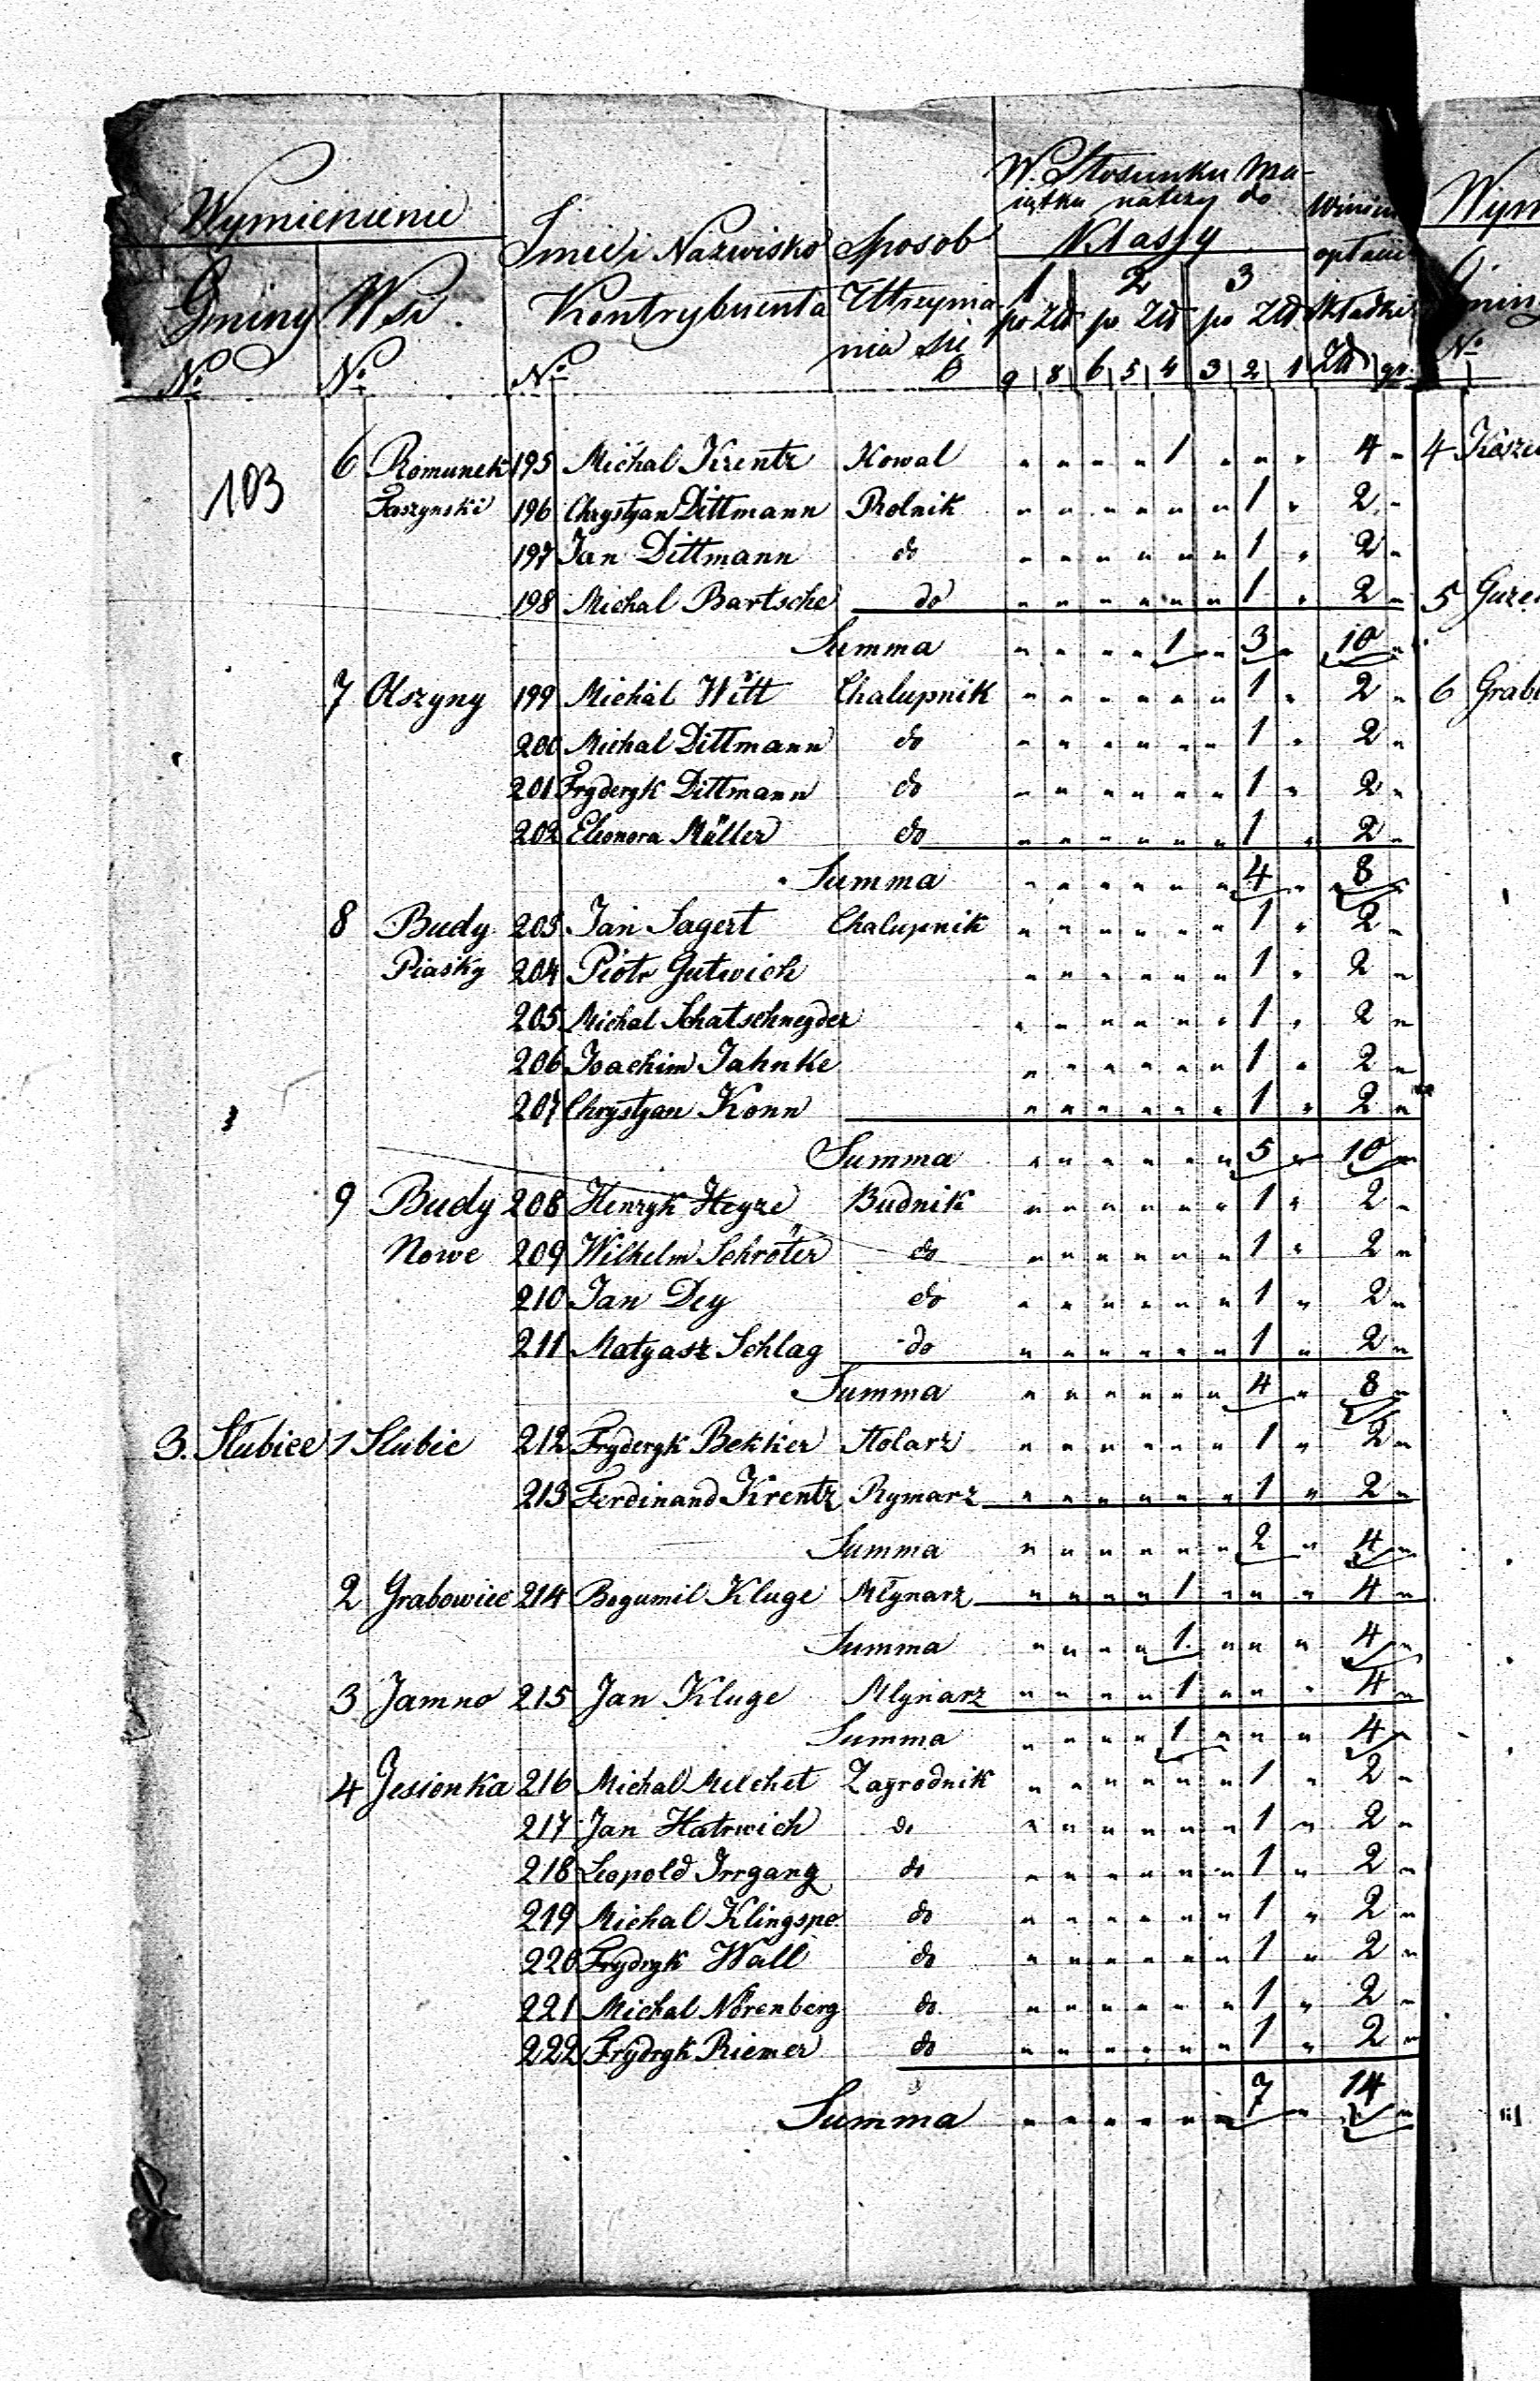 Wymienienie
Gminy
Wsi
Imie i Nazwisko
Kontrybuenta
Sposob
Utrzyma
nia się
W Stosunku Ma-
iątku należy do
Klassy
1 2 3
po Złł po Złł po Złł
9 8 6 5 4 3 2 1
Winien
opłacić
Składki
Zł gr.
No No No
103
6 Romunek 195 Michal Krentz Kowal " " " " 1 " " " 4 "
Faszynski 196 Chrystyan Dittmann Rolnik " " " " " " 1 " 2 "
197 Jan Dittmann do " " " " " " 1 " 2 "
198 Michal Bartsche do " " " " " " 1 " 2 "
Summa " " " " 1 " 3 " 10 "
7 Olszyny 199 Michal Witt Chalupnik " " " " " " 1 " 2 "
200 Michal Dittmann do " " " " " " 1 " 2 "
201 Frydergk Dittmann do " " " " " " 1 " 2 "
202 Eleonora Müller do " " " " " " 1 " 2 "
Summa " " " " " " 4 " 8 "
8 Budy 203 Jan Sagert Chalupnik " " " " " " 1 " 2 "
Piasky 204 Piotr Gutwich " " " " " " 1 " 2 "
205 Michal Schatschneyder " " " " " " 1 " 2 "
206 Joachim Jahnke " " " " " " 1 " 2 "
207 Chrystyan Konn " " " " " " 1 " 2 "
Summa " " " " " " 5 " 10 "
9 Budy 208 Henryk Heyze Budnik " " " " " " 1 " 2 "
Nowe 209 Wilhelm Schröter do " " " " " " 1 " 2 "
210 Jan Dey do " " " " " " 1 " 2 "
211 Matyasz Schlag do " " " " " " 1 " 2 "
Summa " " " " " " 4 " 8 "
3. Słubice 1 Slubic 212 Fryderyk Bekker Stolarz " " " " " " 1 " 2 "
213 Ferdinand Krentz Rymarz " " " " " " 1 " 2 "
Summa " " " " " " 2 " 4 "
2 Grabowiec 214 Bogumil Kluge Młynarz " " " " 1 " " " 4 "
Summa " " " " 1 " " " 4 "
3 Jamno 215 Jan Kluge Mlynarz " " " " 1 " " " 4 "
Summa " " " " 1 " " " 4 "
4 Jesionka 216 Michal Melchet Zagrodnik " " " " " " 1 " 2 "
217 Jan Hatrwich do " " " " " " 1 " 2 "
218 Leopold Irrgang do " " " " " " 1 " 2 "
219 Michal Klingspo do " " " " " " 1 " 2 "
220 Frydryk Wall do " " " " " " 1 " 2 "
221 Michal Nörenberg do " " " " " " 1 " 2 "
222 Frydryk Riemer do " " " " " " 1 " 2 "
Summa " " " " " " 7 " 14 "
Wym
No
4
5
6